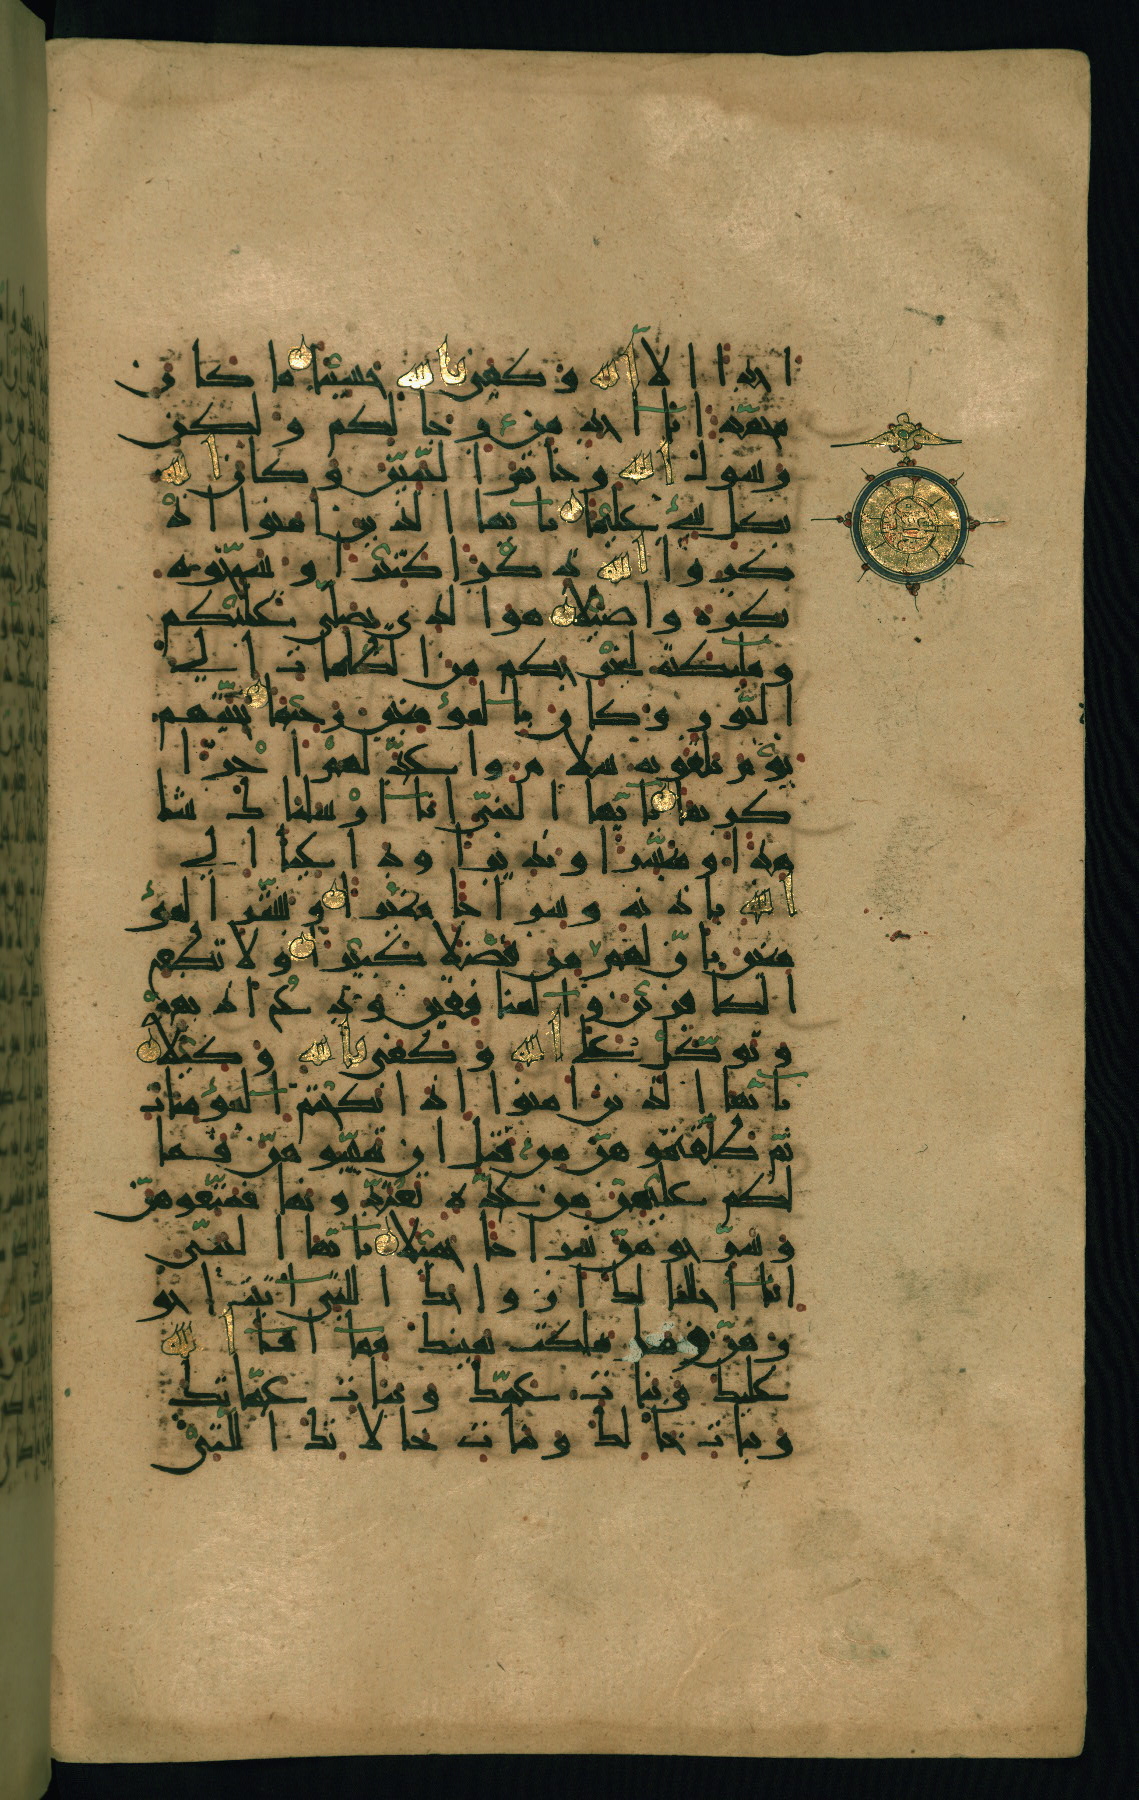 احدا الا الله وكفى بالله حسيبا ما كان
محمد ابا احد من رجالكم ولكن
رسول الله وخاتم النبيين وكان الله
بكل شىء عليما يا ايها الذين امنوا اذ
كروا الله ذكرا كثيرا وسبحوه
بكرة واصيلا هو الذي يصلي عليكم
وملئكته ليخرجكم من الظلمات الى
النور وكان بالمؤمنين رحيما تحيتهم
يوم يلقونه سلام واعد لهم اجرا
كريما يا ايها النبي انا ارسلناك شا
هدا ومبشرا ونذيرا وداعيا الى
الله باذنه وسراجا منيرا وبشر المؤ
منين بان لهم من فضلا كبيرا ولا تطع
الكافرين والمنافقين ودع اذيهم
وتوكل على الله وكفى بالله وكيلا
يا ايها الذين امنوا اذا نكحتم المؤمنات
ثم طلقتموهن من قبل ان تمسوهن فما
لكم عليهن من عدة تعتدونها فمتعوهن
وسرحوهن سراحا جميلا يا ايها النبي
انا احللنا لك ازواجك اللتي اتيت اجو
رهن وما ملكت يمينك مما افاء الله
عليك وبنات عمك وبنات عماتك
وبنات خالك وبنات خالاتك اللتي